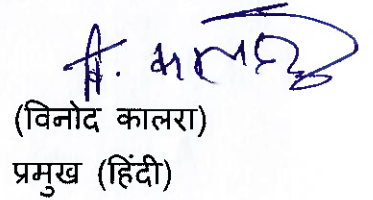 वि. कालरा
(विनोद कालरा)
प्रमुख (हिंदी)